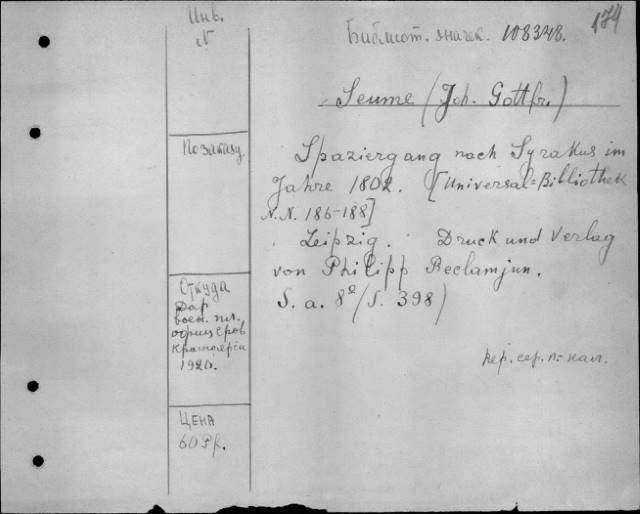 174
Инв.
N
Библиот. значек. 108348.
Seume (Joh. Gottfr.)
По заказу
Spaziergang nach Syrakus im
Jahre 1802. [Universal=Bibliothek
N.N. 186-188]
Leipzig. Druck und Verlag
von Philipp Reclam jun.
S. a. 8º (S. 398)
Откуда
Дар
воен. пл.
офицеров
Красноярск
1920.
пер. сер. п-кал.
Цена
60 Pf.